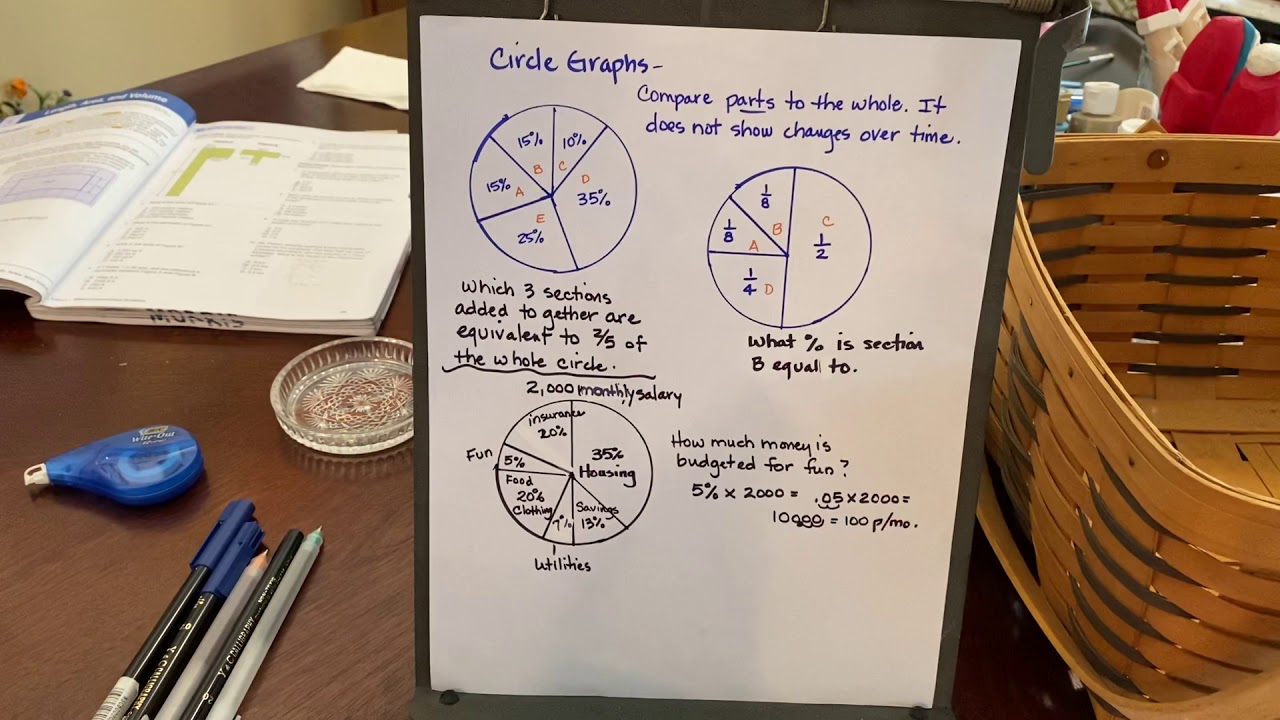 Circle Graphs-
Compare parts to the whole. It
does not show changes over time.
15%
10%
B
C
15%
A
D
35%
E
25%
1/8
1/8
B
C
A
1/2
1/4
D
Which 3 sections
added to gether are
equivalent to 3/5 of
the whole circle.
What % is section
B equal to.
2,000 monthly salary
insurance
20%
Fun
5%
35%
Housing
Food
20%
Clothing
7%
Savings
13%
utilities
How much money is
budgeted for fun?
5% x 2000 = .05 x 2000 =
10000 = 100 p/mo.
Length, Area, and Volume
MORRIS
Wite-Out